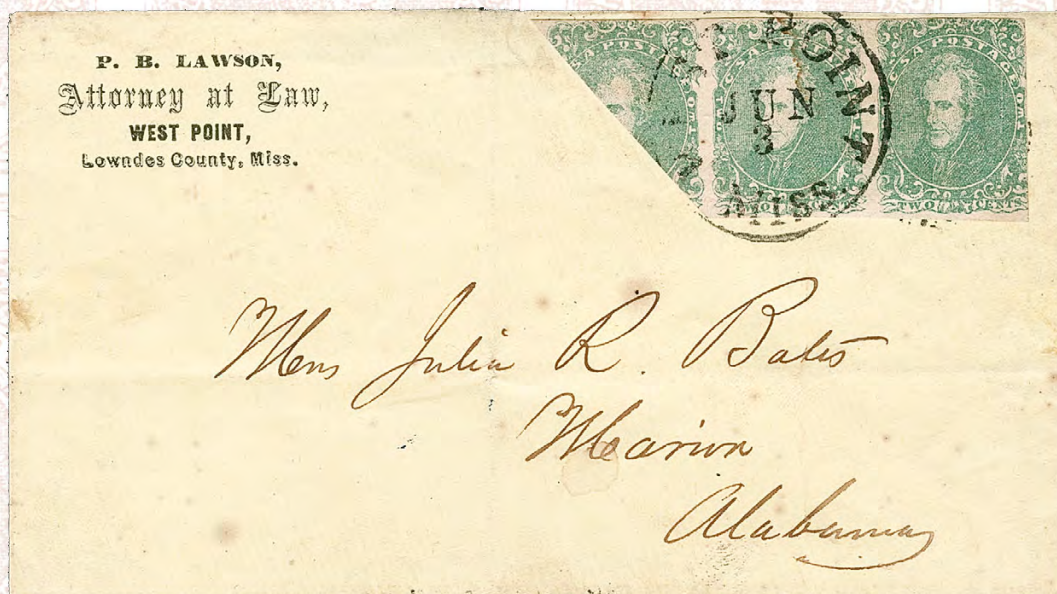 P. B. LAWSON,
Attorney at Law,
WEST POINT,
Lowndes County, Miss.
POINT
JUN
3
MISS.
TWO CENTS
Mrs Julia R. Bates
Marion
Alabama